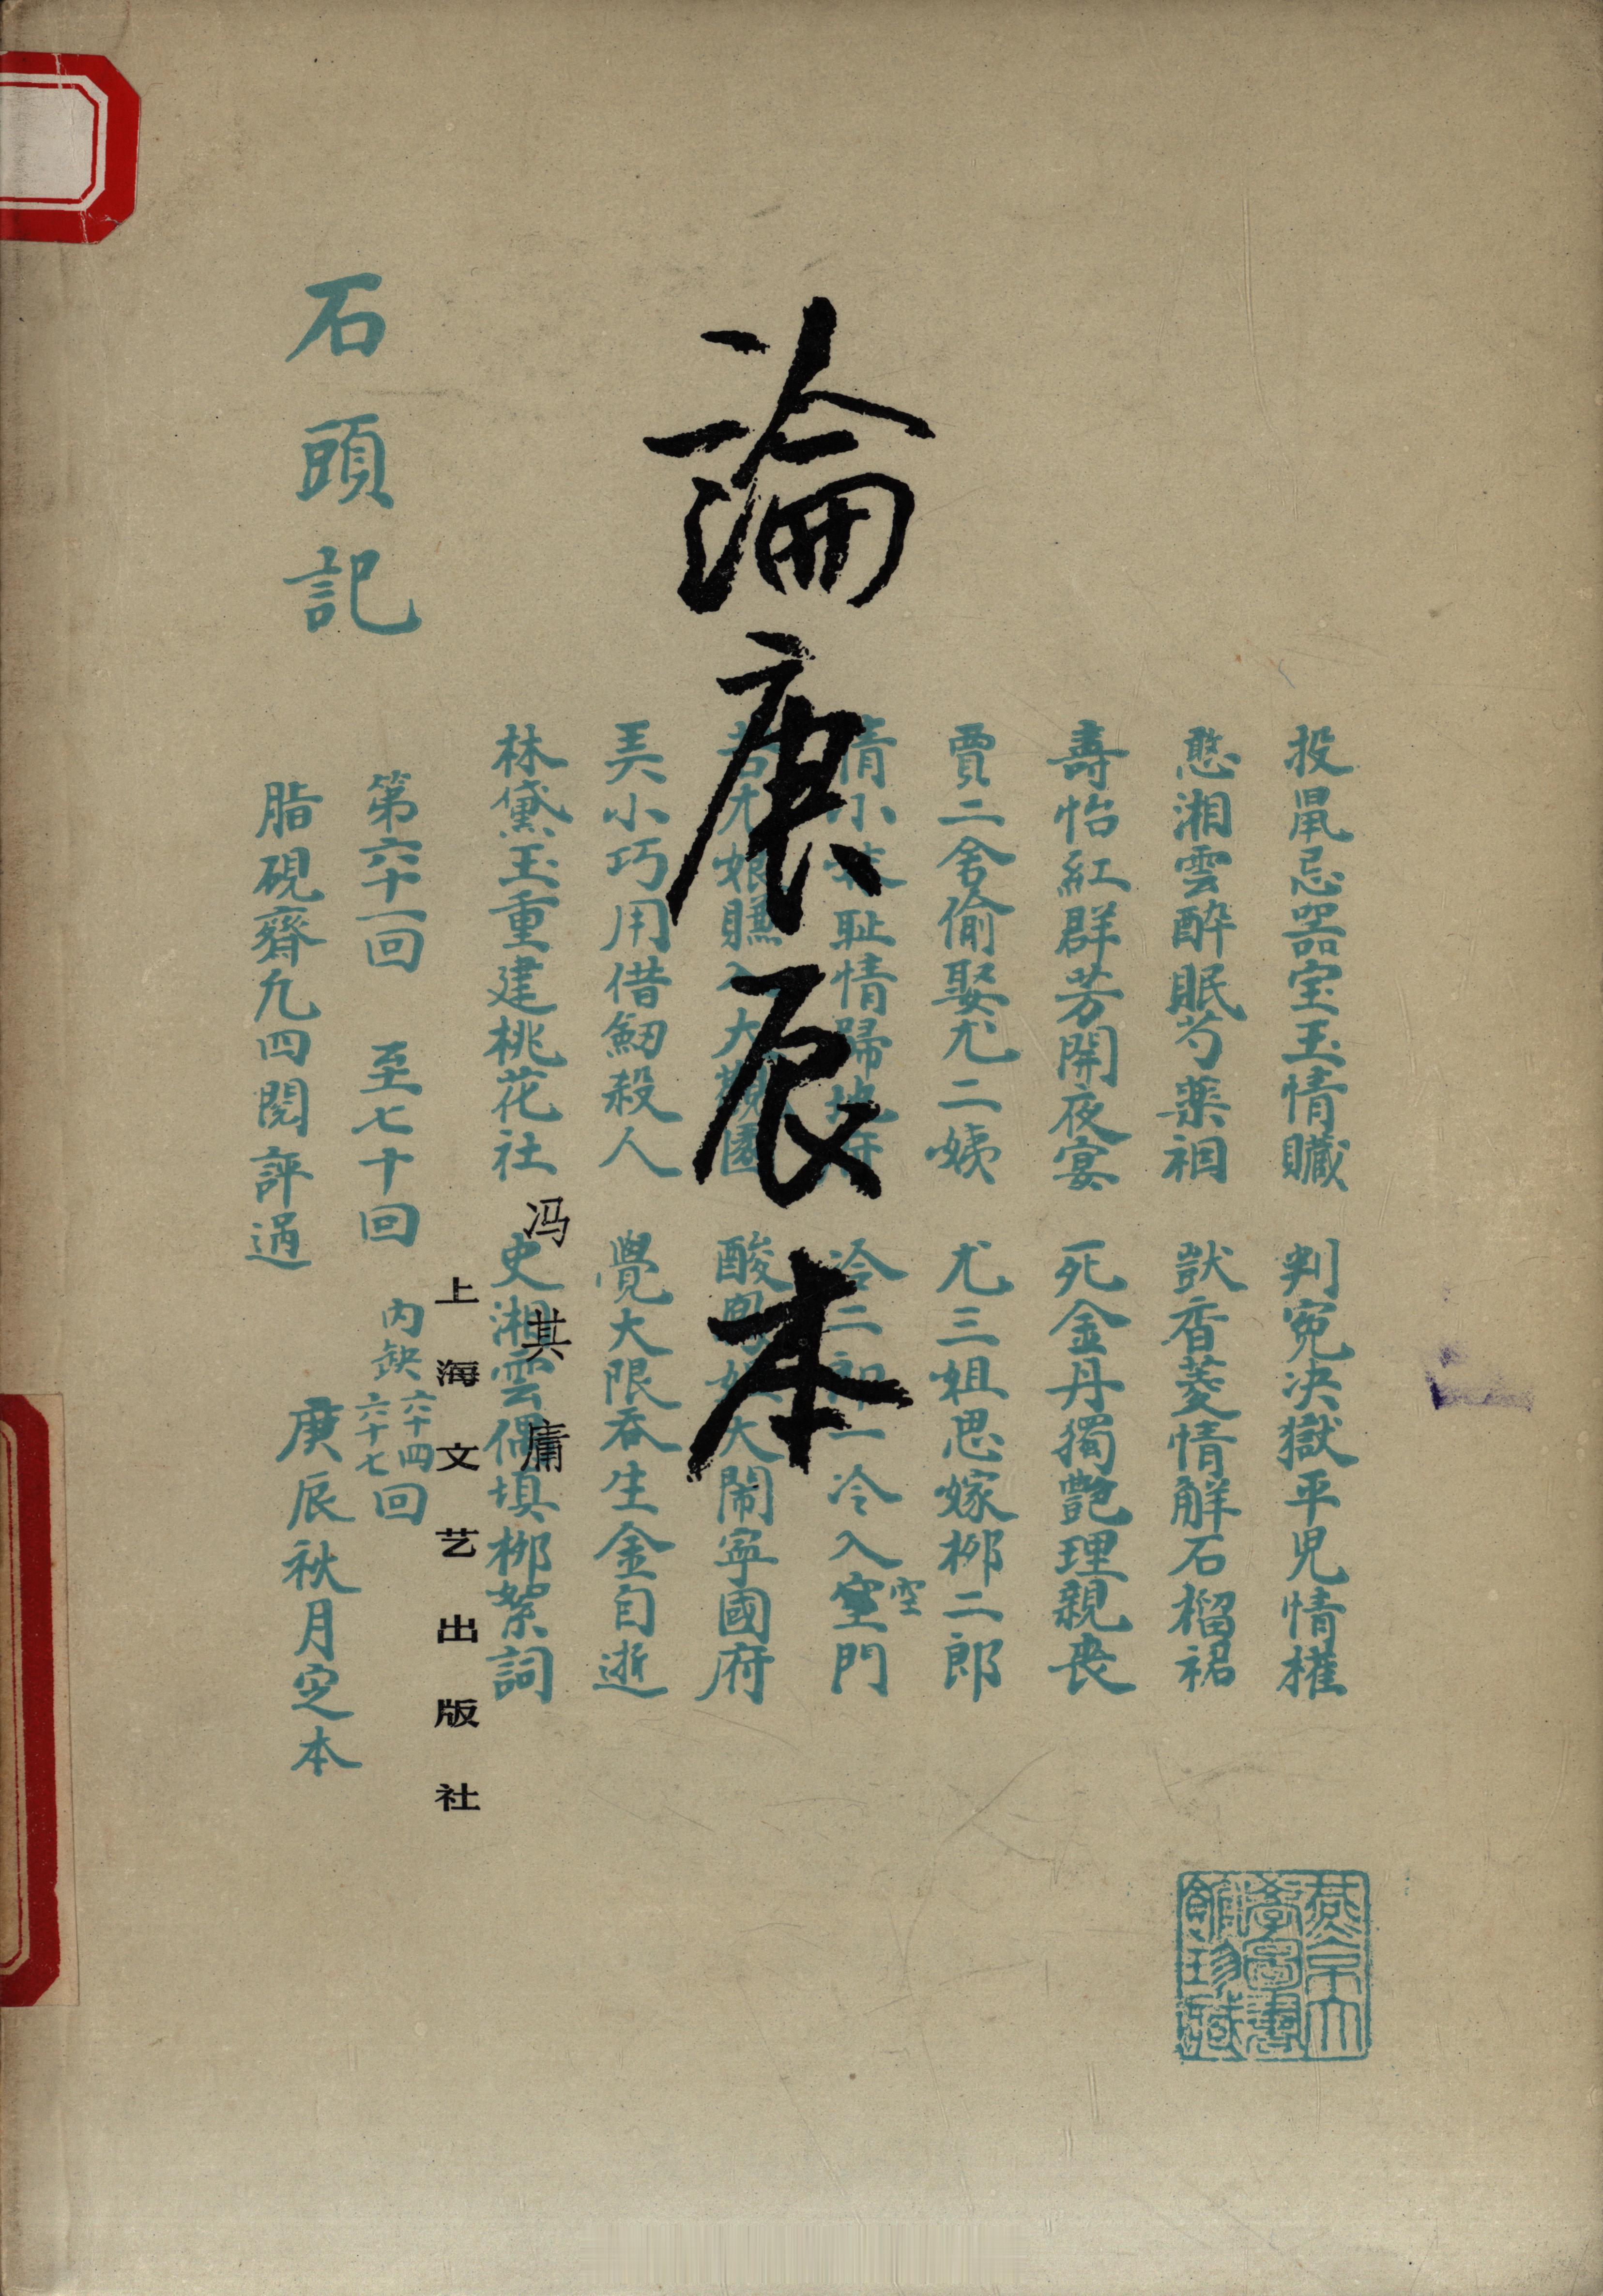 論庚辰本
冯其庸
上海文艺出版社
石頭記
第六十一回 至七十回
內缺六十四六十七回
脂硯齋凡四閱評過
庚辰秋月定本
投鼠忌器宝玉情贜 判冤决獄平兒情權
憨湘雲醉眠芍薬裀 獃香菱情解石榴裙
壽怡紅群芳開夜宴 死金丹獨艷理親丧
賈二舍偷娶尤二姨 尤三姐思嫁柳二郎
情小妹耻情歸地府 冷二郎一冷入空門
苦尤娘賺入大觀園 酸鳳姐大鬧寧國府
弄小巧用借劎殺人 覺大限吞生金自逝
林黛玉重建桃花社 史湘雲偶填柳絮詞
空
燕京大學圖書館珍藏